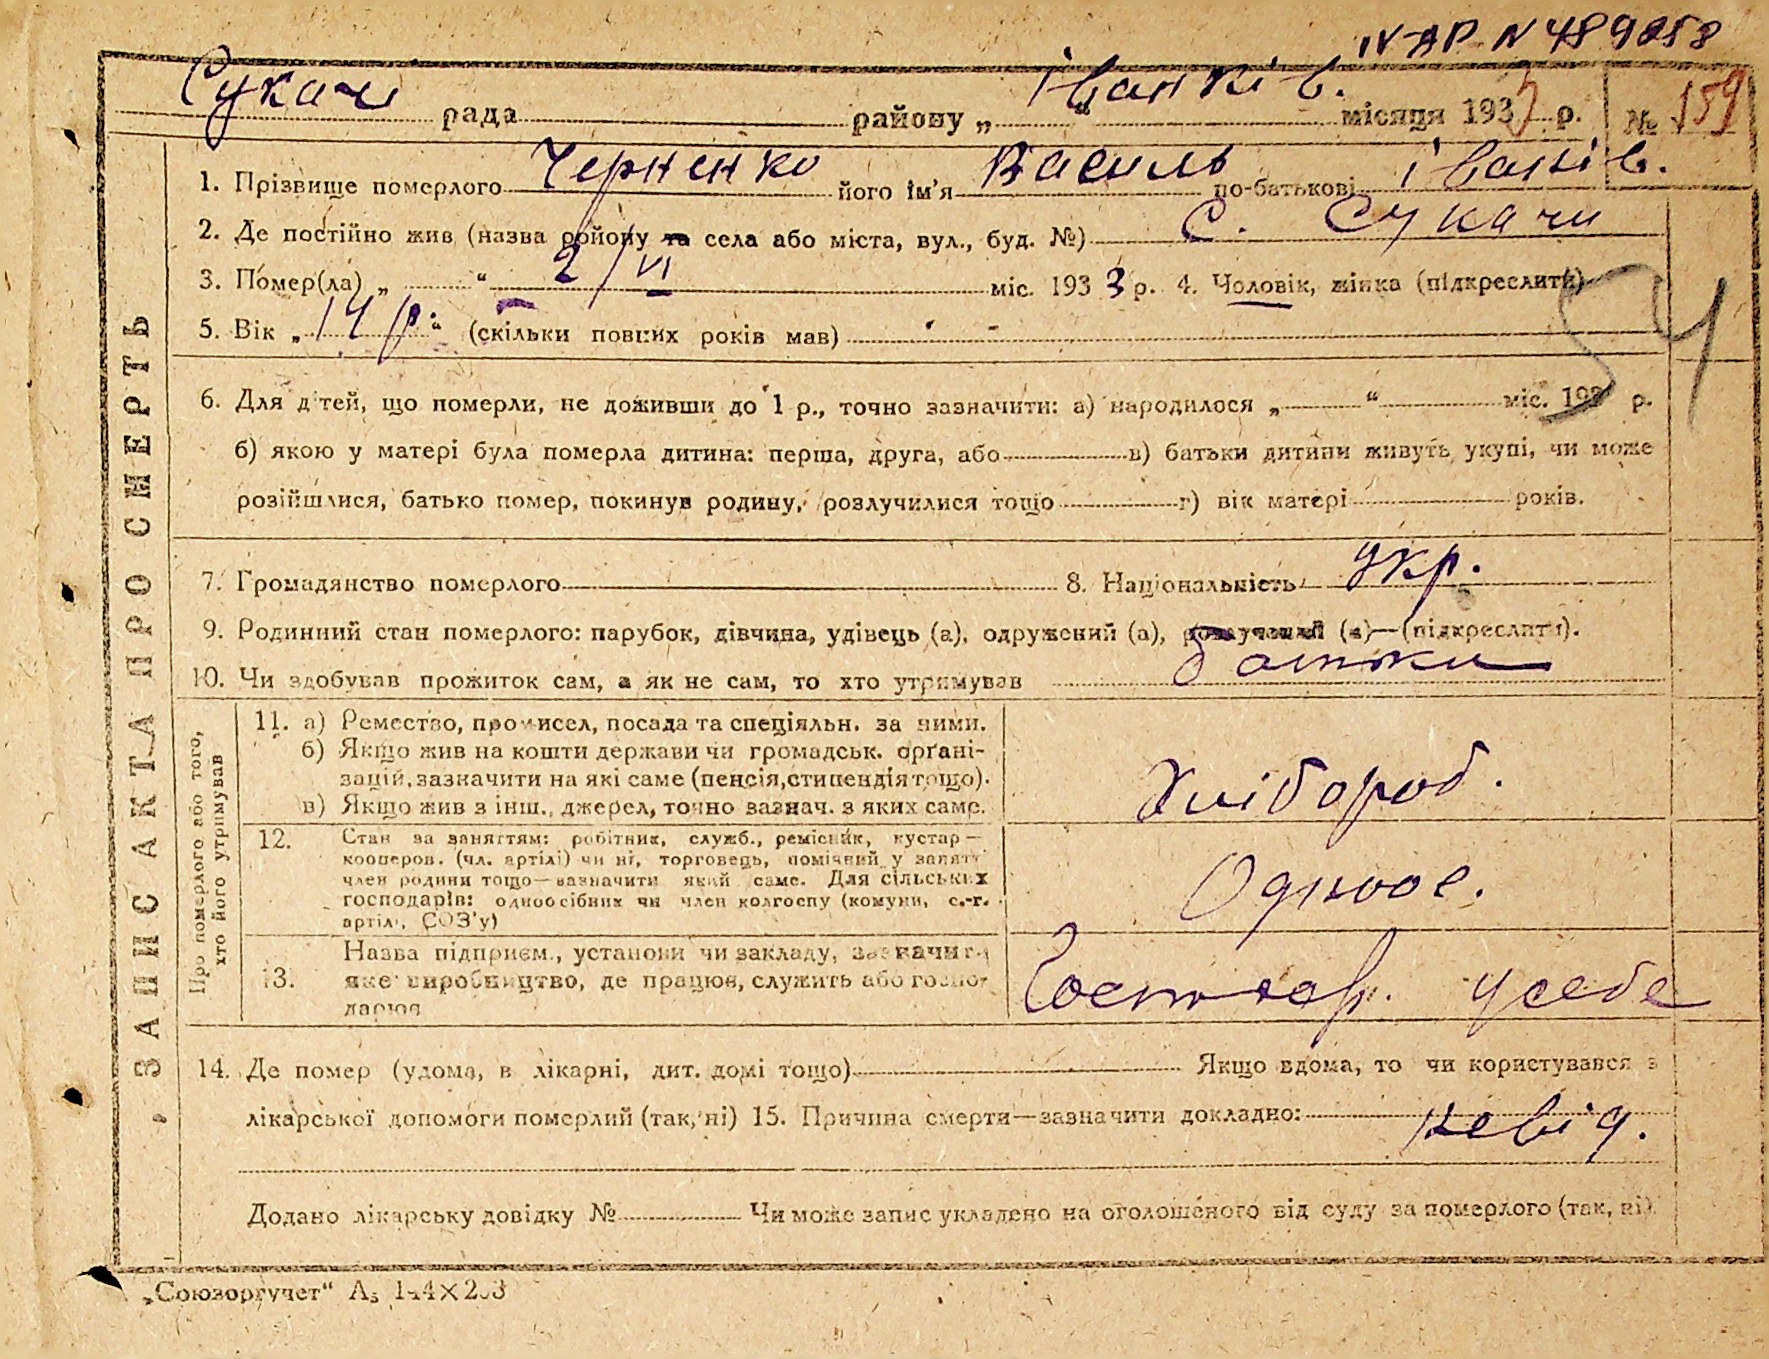 IV-АР N 489058
Сукачі рада району „ “ Іванків. місяця 1933 р. № 159
ЗАПИС АКТА ПРО СМЕРТЬ
1. Прізвище померлого Черненко його ім’я Василь по-батькові Іванів.
2. Де постійно жив (назва району та села або міста, вул., буд. №) С. Сукачи
3. Помер(ла) „ “ 2/VI міс. 1933 р. 4. Чоловік, жінка (підкреслити)
5. Вік „ 14 р. “ (скільки повних років мав)
54
6. Для дітей, що померли, не доживши до 1 р., точно зазначити: а) народилося „ “ міс. 193 р.
б) якою у матері була померла дитина: перша, друга, або в) батьки дитини живуть укупі, чи може
розійшлися, батько помер, покинув родину, розлучилися тощо г) вік матері років.
7. Громадянство померлого 8. Національність укр.
9. Родинний стан померлого: парубок, дівчина, удівець (а), одружений (а), розлучений (а)—(підкреслити).
10. Чи здобував прожиток сам, а як не сам, то хто утримував батьки
Про померлого або того,
хто його утримував
11. а) Ремество, промисел, посада та спеціяльн. за ними.
б) Якщо жив на кошти держави чи громадськ. органі-
зацій, зазначити на які саме (пенсія, стипендія тощо).
в) Якщо жив з інш., джерел, точно зазнач. з яких саме.
Хлібороб.
12. Стан за заняттям: робітник, служб., ремісник, кустар—
кооперов. (чл. артілі) чи ні, торговець, помічний у занятт
член родини тощо—зазначити який саме. Для сільських
господарів: одноосібник чи член колгоспу (комуни, с.-г.
артілі, СОЗ’у)
Одноос.
13. Назва підприєм., установи чи закладу, зазначити
яке виробництво, де працює, служить або госпо-
дарює
Господар. у себе
14. Де помер (удома, в лікарні, дит. домі тощо) Якщо вдома, то чи користувався з
лікарської допомоги померлий (так, ні) 15. Причина смерти—зазначити докладно: невід.
Додано лікарську довідку № Чи може запис укладено на оголошеного від суду за померлого (так, ні)
„Союзоргучет“ А₅